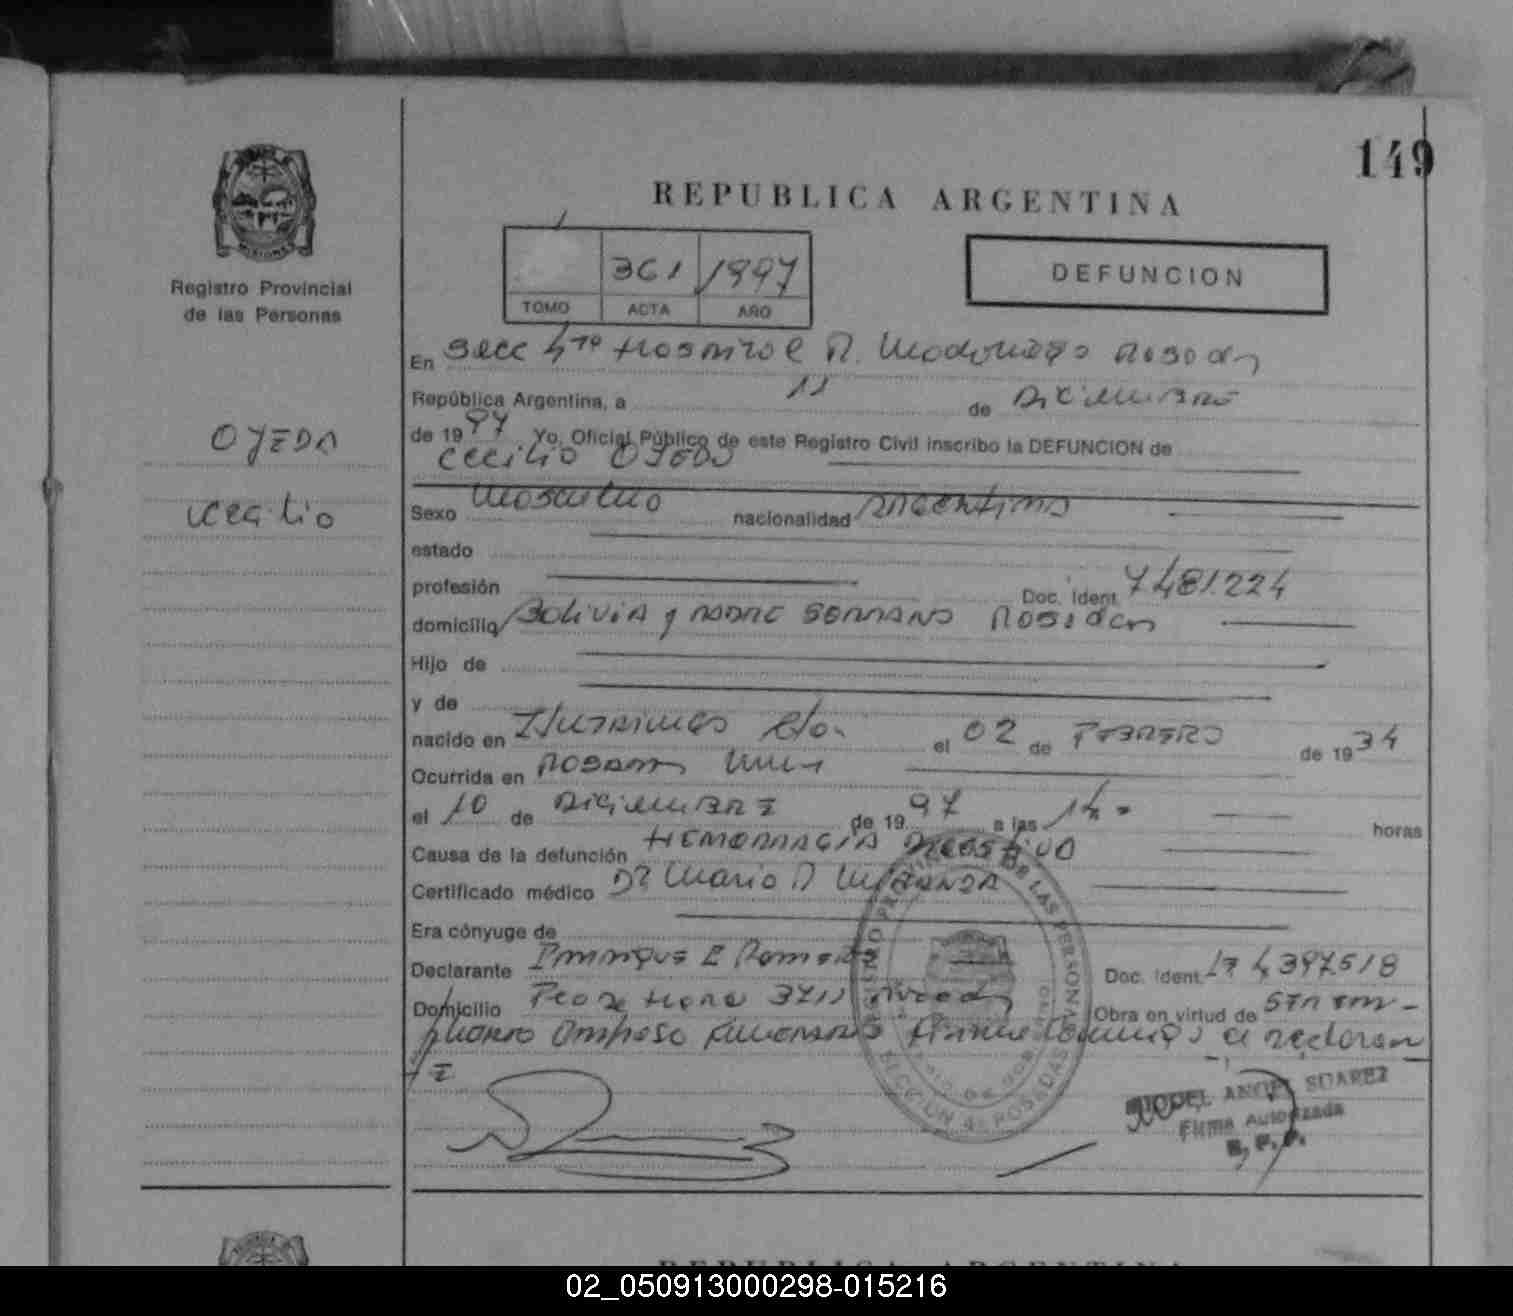 149
REPUBLICA ARGENTINA
361 1997
TOMO ACTA AÑO
DEFUNCION
Registro Provincial
de las Personas
OJEDA
Cecilio
En Secc 4ta Hospital R. Madariaga Posadas
República Argentina, a 11 de Diciembre
de 1997 Yo, Oficial Público de este Registro Civil inscribo la DEFUNCION de
Cecilio OJEDA
Sexo Masculino nacionalidad Argentina
estado
profesión Doc. Ident. 7481.224
domicilio Bolivia y PADRE SERRANO Posadas
Hijo de
y de
nacido en el 02 de FEBRERO de 1934
Ocurrida en Posadas
el 10 de DICIEMBRE de 1997 a las 14 horas
Causa de la defunción HEMORRAGIA DIGESTIVA
Certificado médico Dr Mario
Era cónyuge de
Declarante E Romero Doc. Ident. 17 4397518
Domicilio Posadas Obra en virtud de
a declaran
te
REGISTRO PROVINCIAL DE LAS PERSONAS
SECCION 4a POSADAS
MIGUEL ANGEL SUAREZ
Firma Autorizada
R. P. P.
REPUBLICA ARGENTINA
02_050913000298-015216